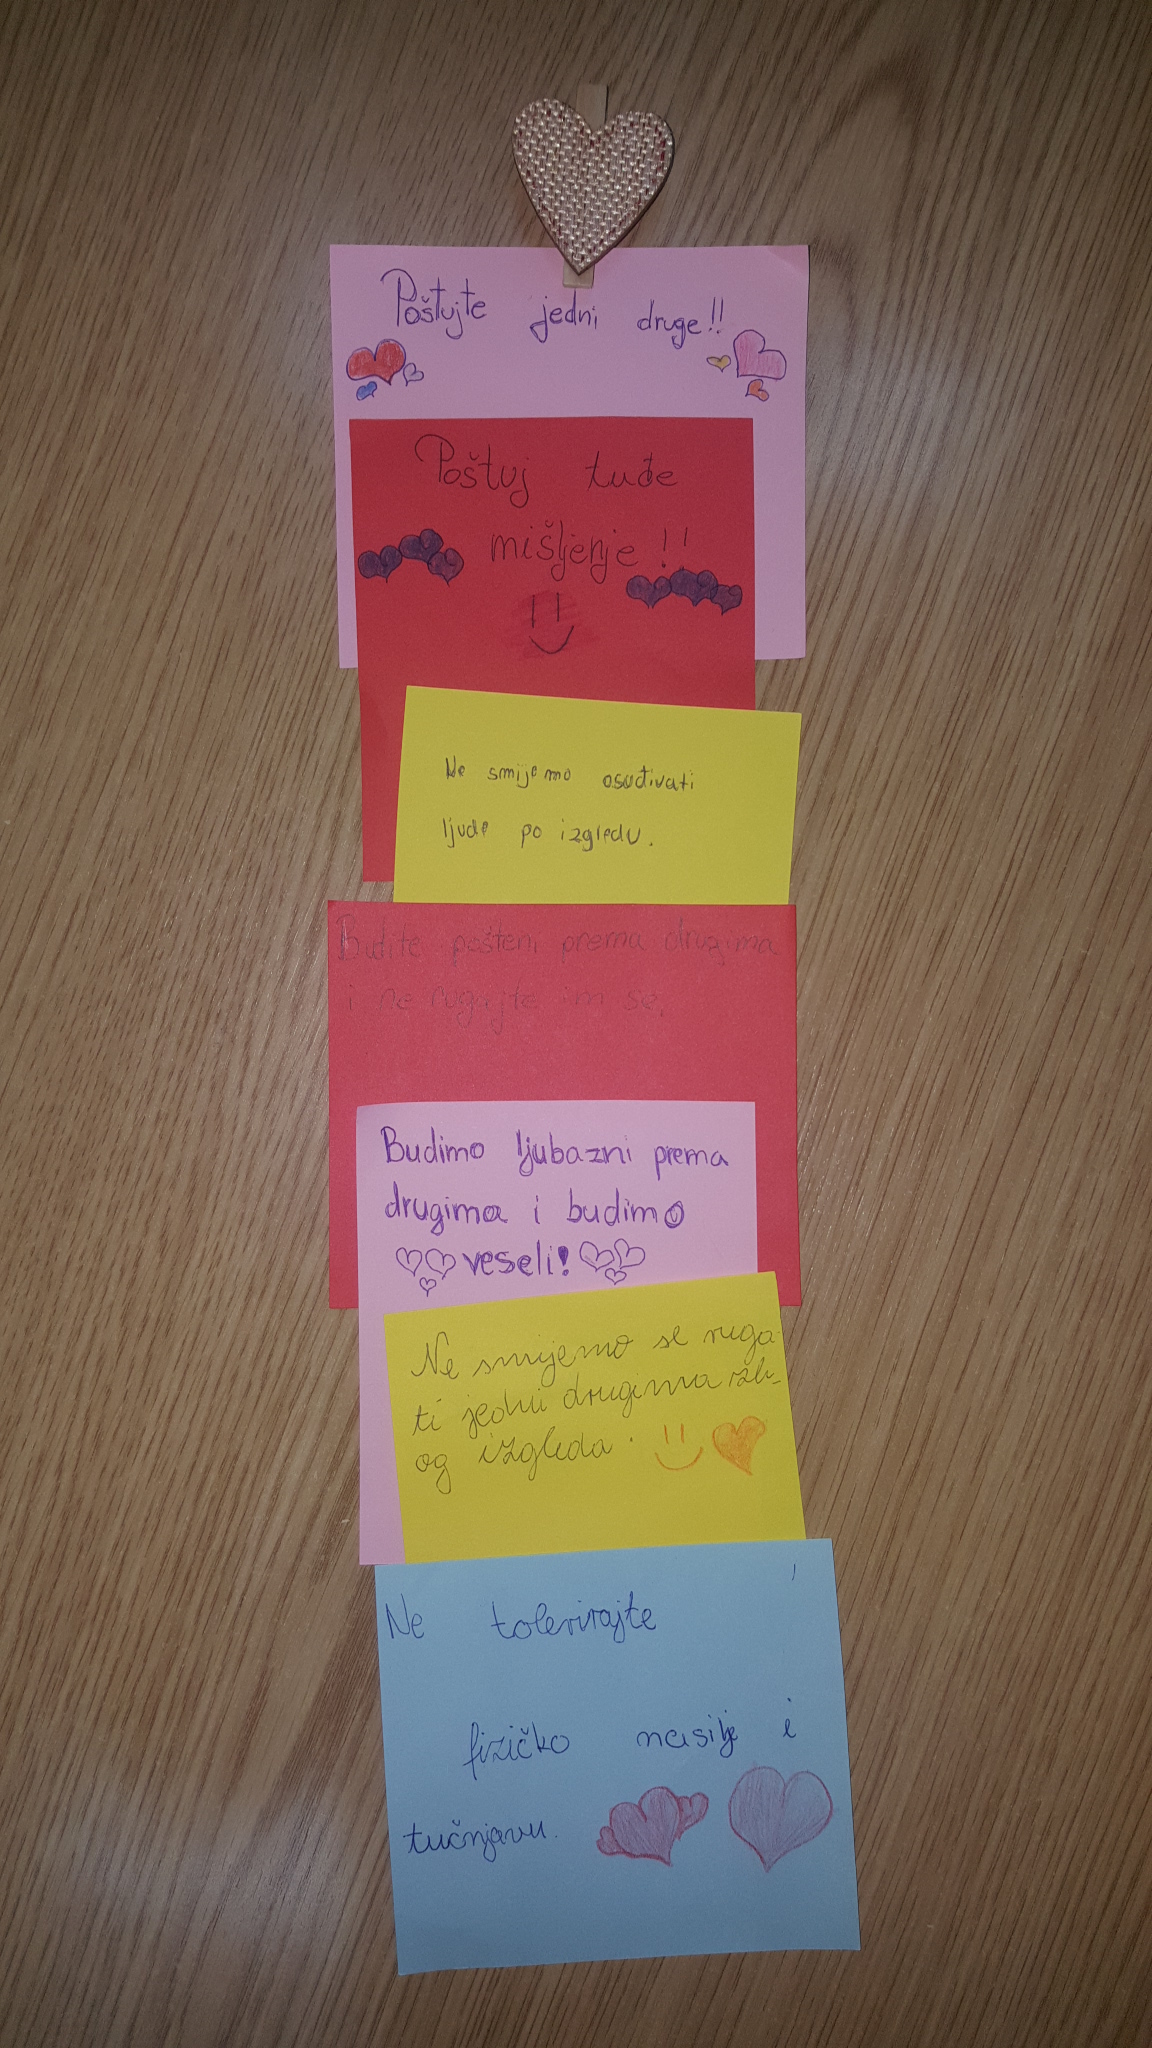 Poštujte jedni druge!!
Poštuj tuđe
mišljenje!!
Ne smijemo osuđivati
ljude po izgledu.
Budite pošteni prema drugima
i ne rugajte im se.
Budimo ljubazni prema
drugima i budimo
veseli!
Ne smijemo se ruga-
ti jedni drugima zb-
og izgleda.
Ne tolerirajte
fizičko nasilje i
tučnjavu.